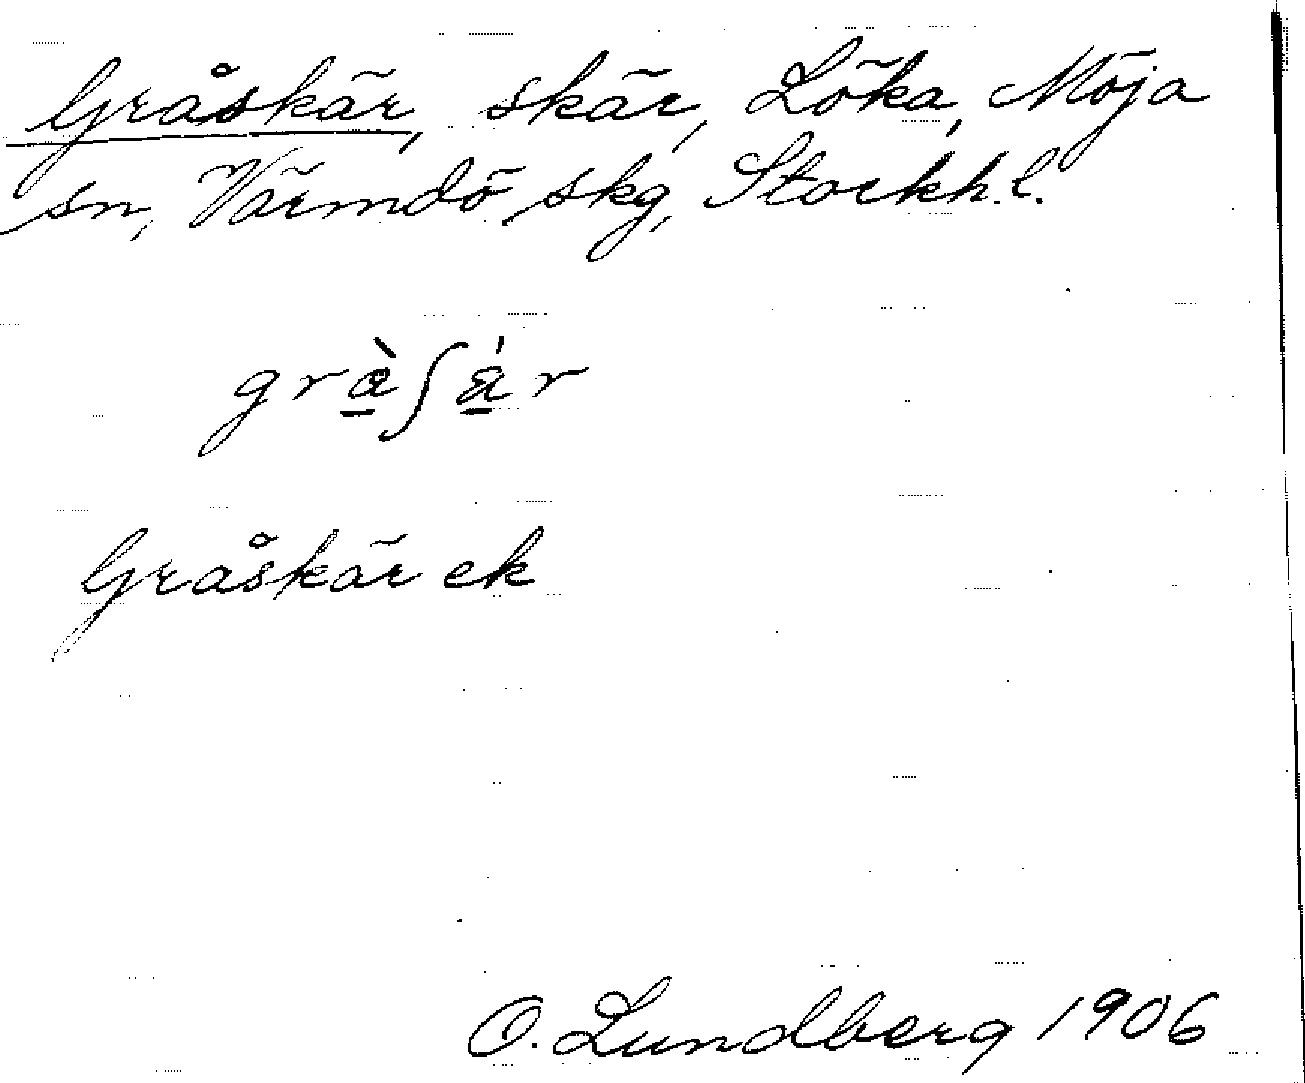 Gråskär, skär, Löka, Möja
sn, Värmdö skg, Stockh. l.
Gråskär ek
O. Lundberg 1906